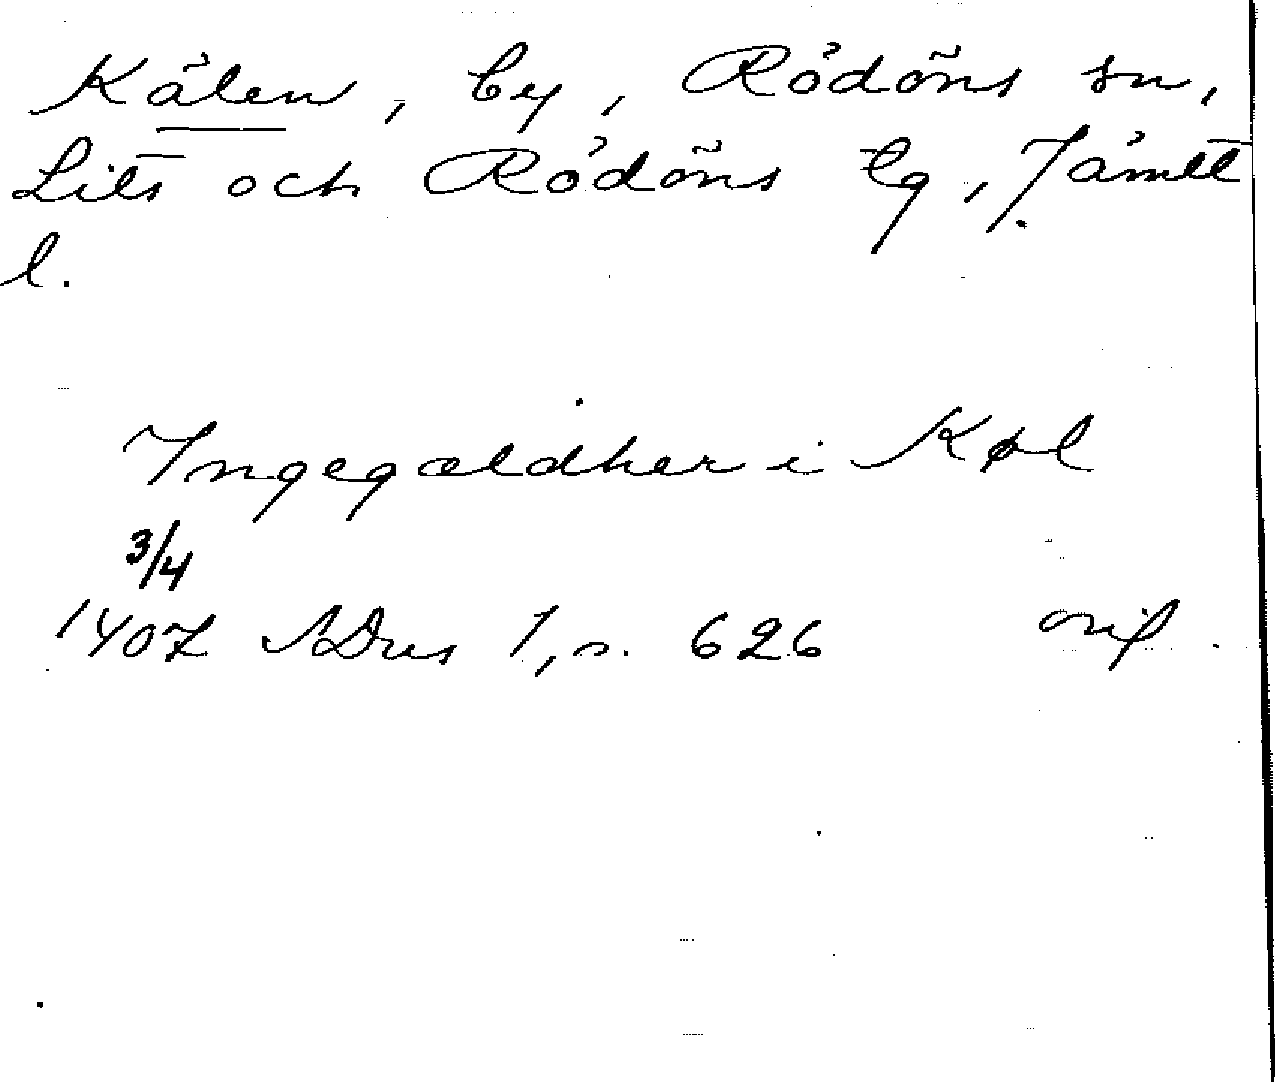 Kälen, by, Rödöns sn,
Lits och Rödöns tg, Jämtl
l.
Ingegældher i Køl
3/4
1407 SDns 1, s. 626 orig.